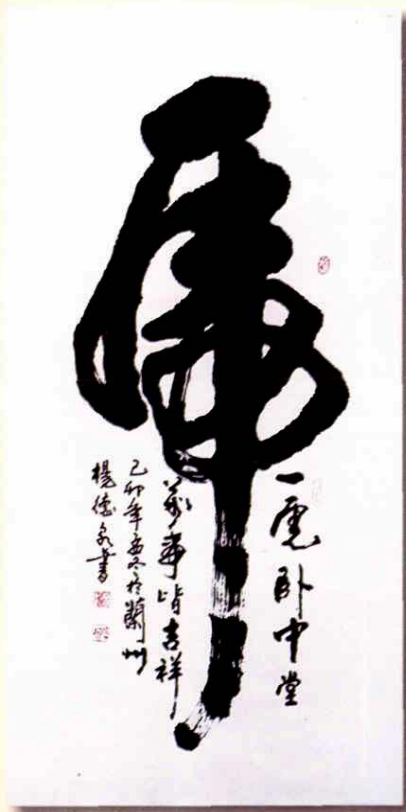 虎
一虎卧中堂
萬事皆吉祥
己卯年孟冬於蘭州
楊德泉書